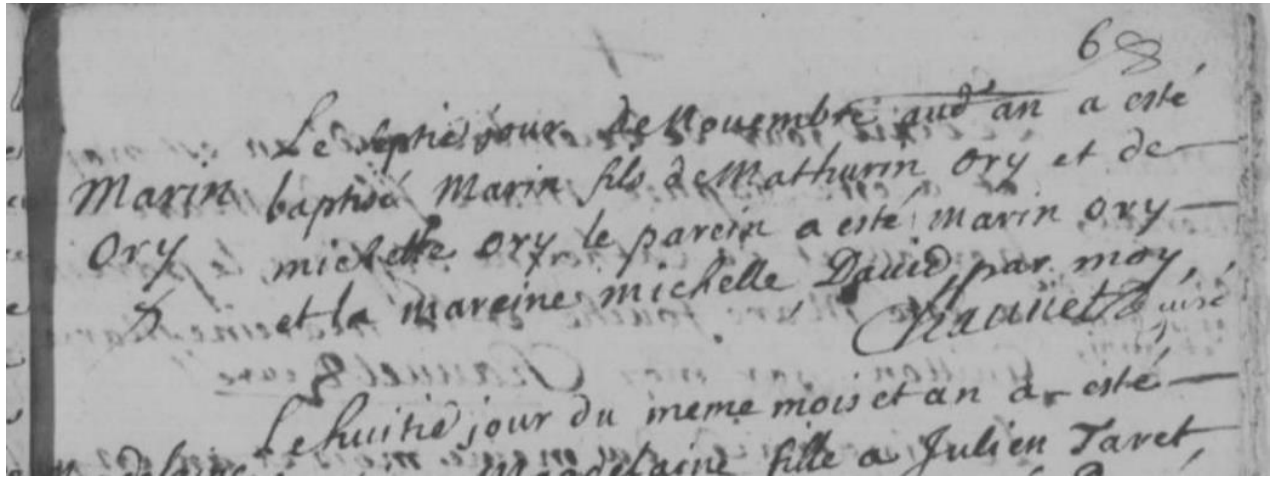 68
Le septie jour de Novembre aud an a esté
Marin baptisé Marin fils de Mathurin Ory et de
Ory michelle Ory le parein a esté marin ory
et la mareine michelle David par moy,
curé
Le huitie jour du meme mois et an a esté
Magdelaine fille a Julien Taret